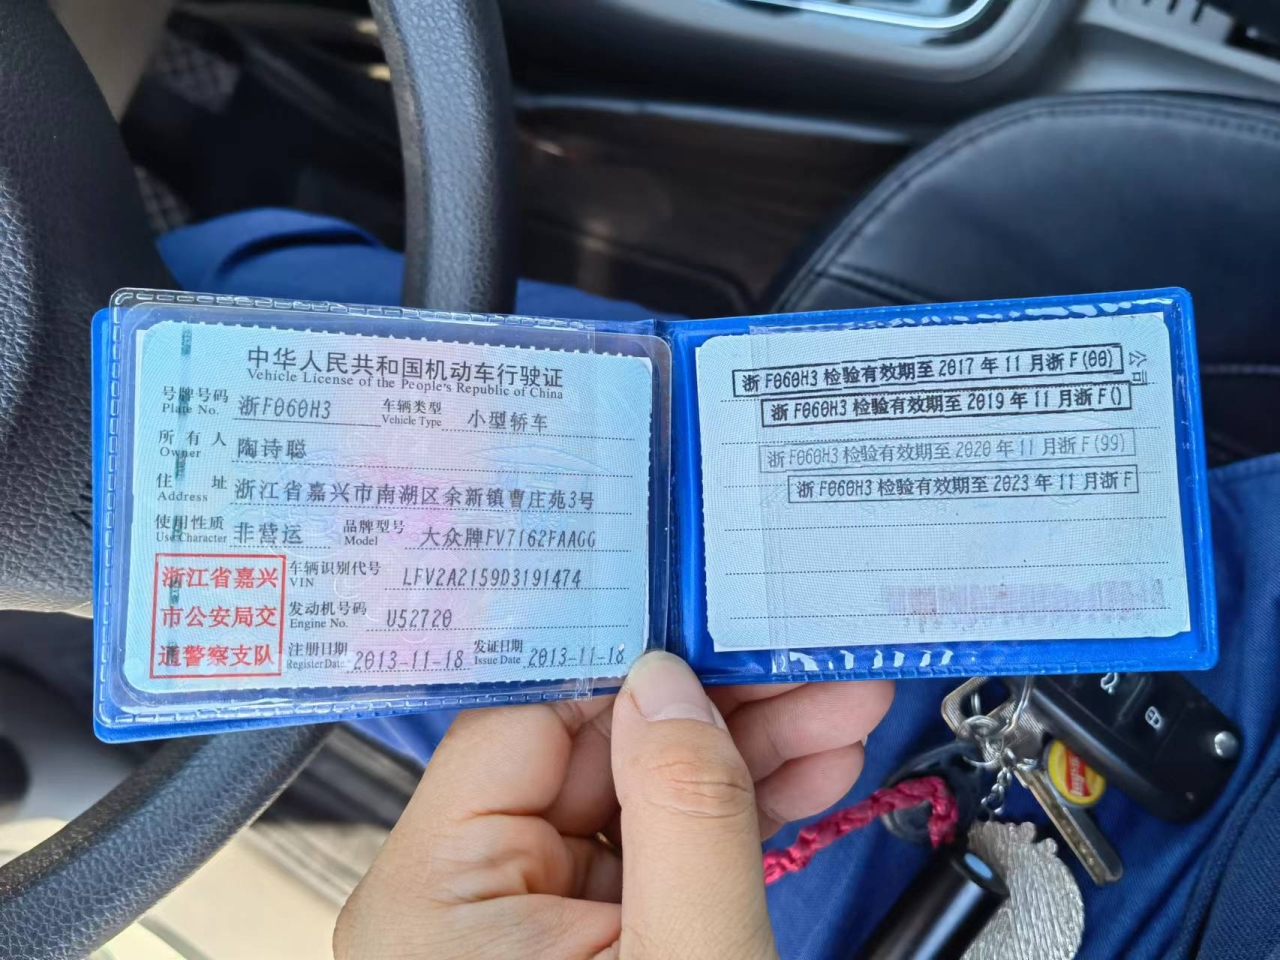 中华人民共和国机动车行驶证
Vehicle License of the People's Republic of China
号牌号码 浙F060H3 车辆类型 小型轿车
Plate No. Vehicle Type
所有人 陶诗聪
Owner
住址 浙江省嘉兴市南湖区余新镇曹庄苑3号
Address
使用性质 非营运 品牌型号 大众牌FV7162FAAGG
Use Character Model
浙江省嘉兴
市公安局交
通警察支队
车辆识别代号 LFV2A2159D3191474
VIN
发动机号码 U52720
Engine No.
注册日期 2013-11-18 发证日期 2013-11-18
Register Date Issue Date
浙F060H3检验有效期至2017年11月浙F(00)
浙F060H3检验有效期至2019年11月浙F()
浙F060H3检验有效期至2020年11月浙F(99)
浙F060H3检验有效期至2023年11月浙F